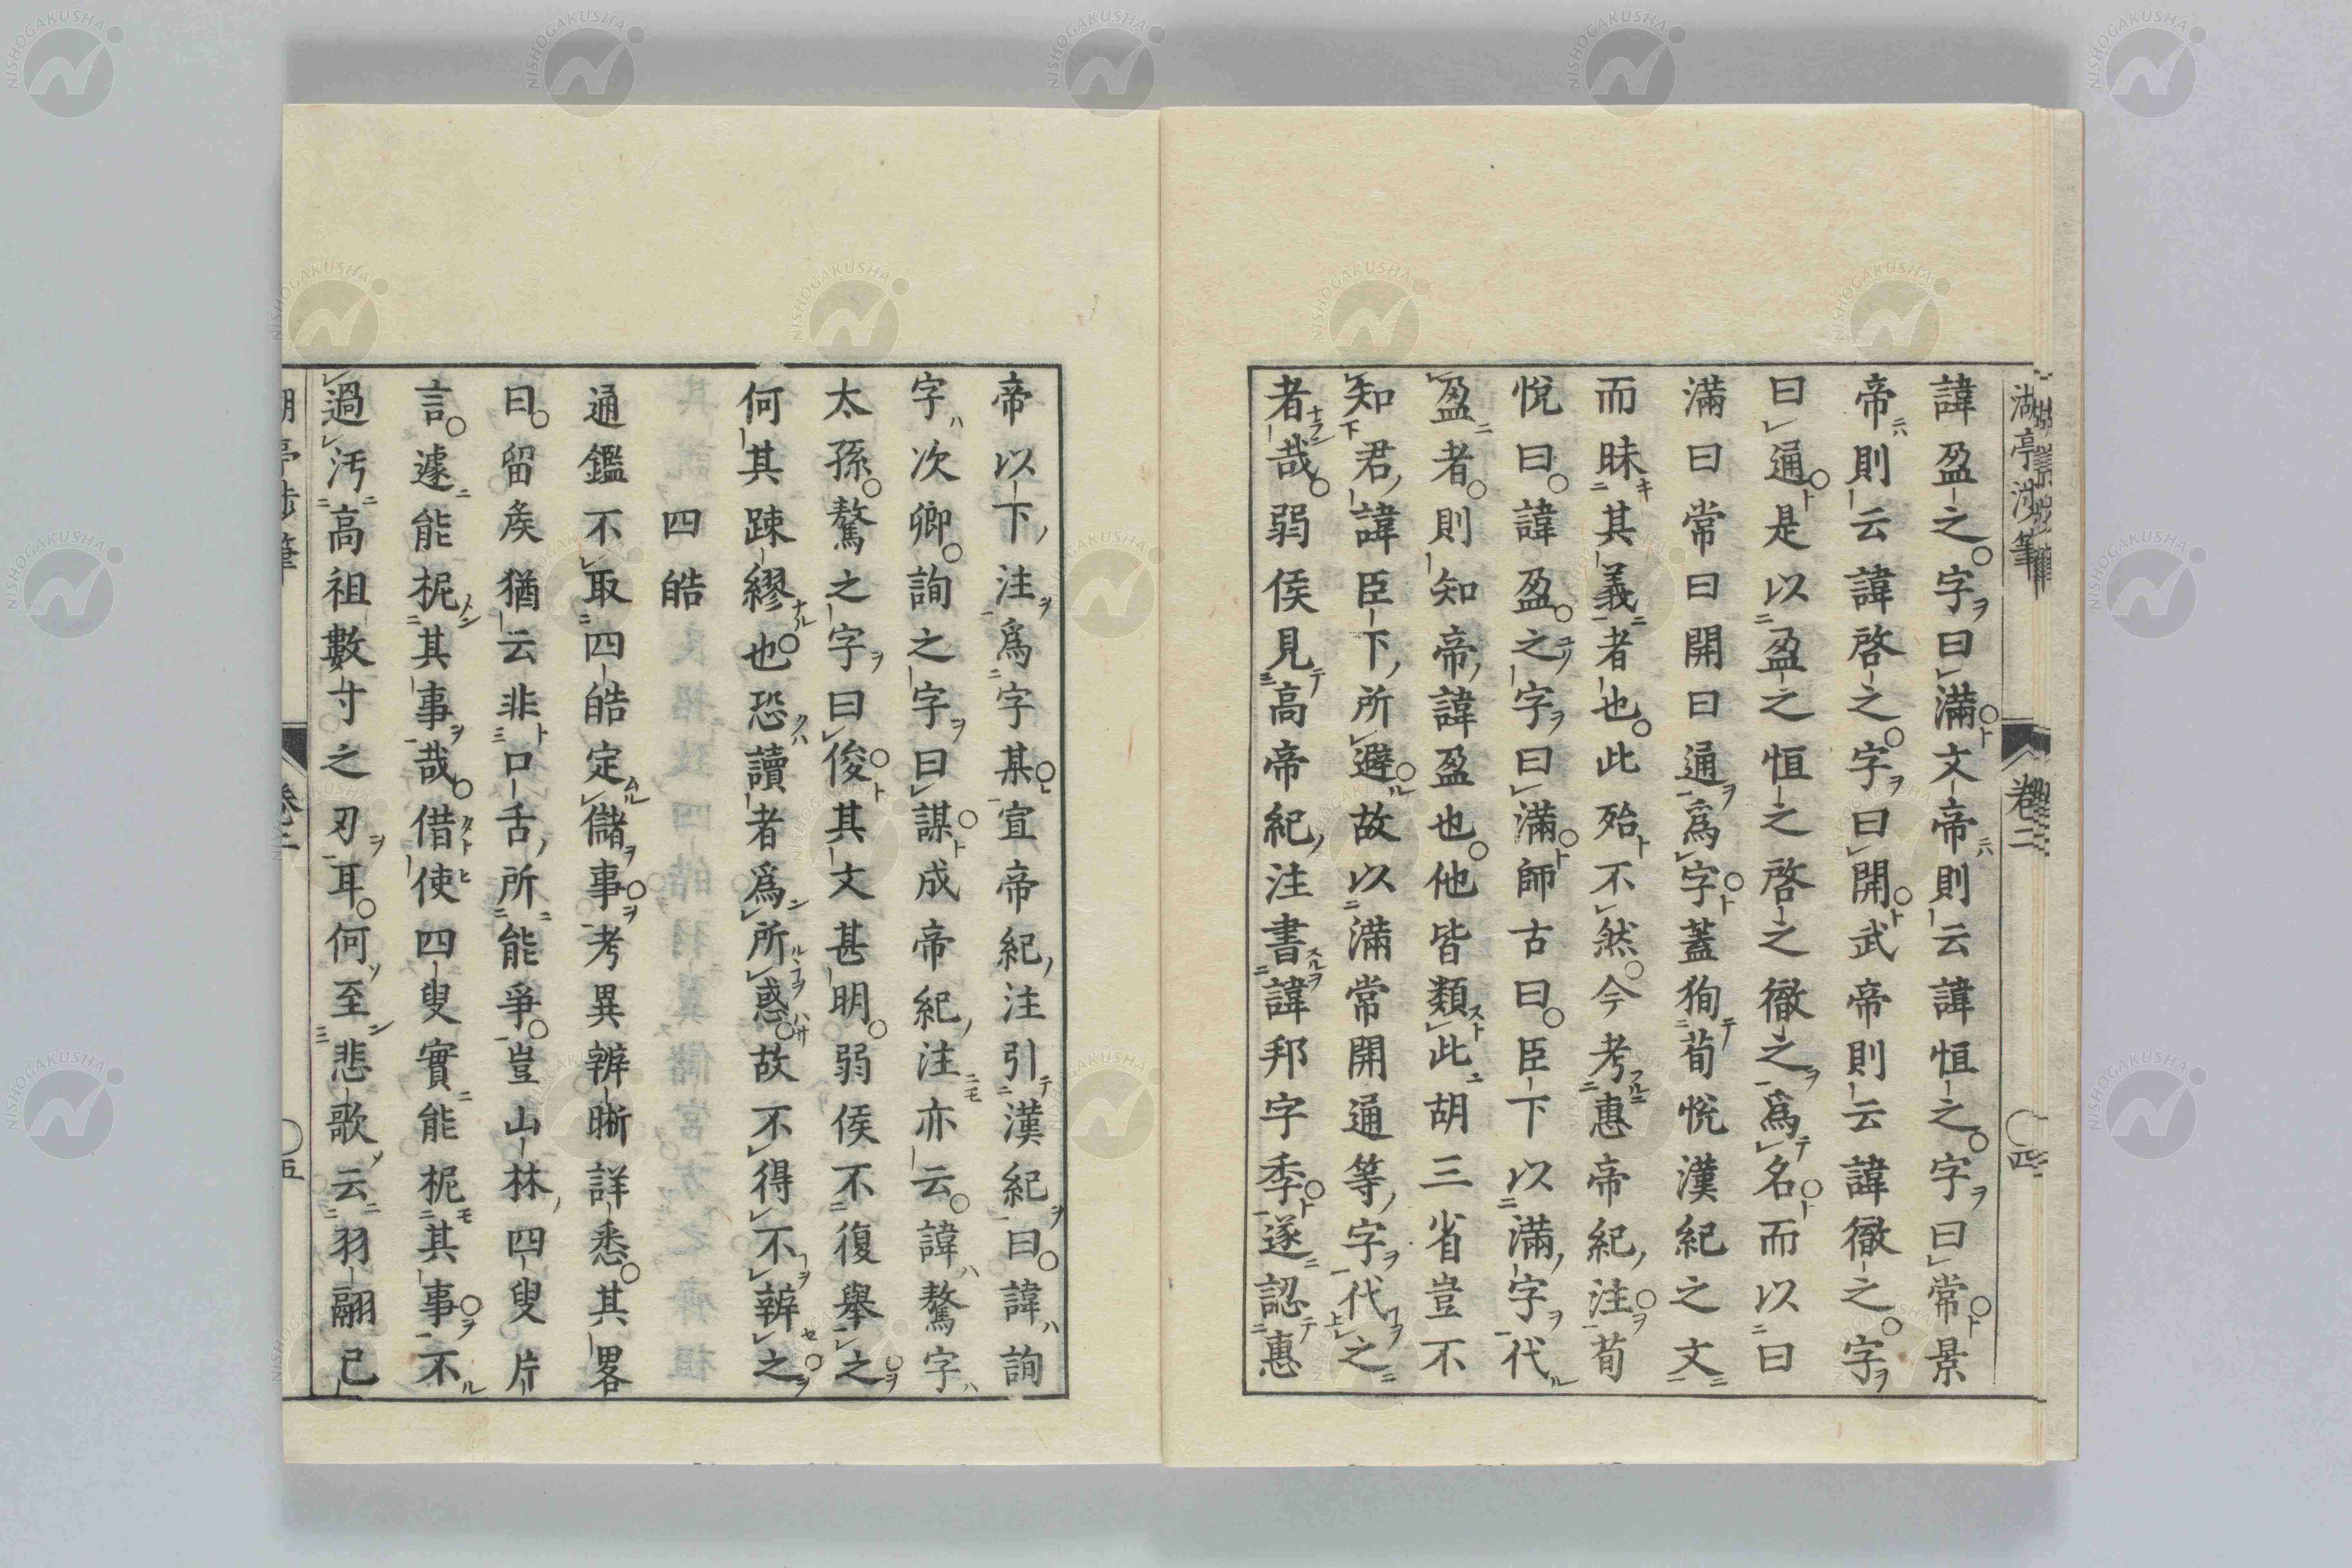 湖亭渉筆
卷二
四
諱盈之字曰滿文帝則云諱恒之字曰常景
帝則云諱啓之字曰開武帝則云諱徹之字
曰通是以盈之恒之啓之徹之爲名而以曰
滿曰常曰開曰通爲字蓋狥荀悅漢紀之文
而昧其義者也此殆不然今考惠帝紀注荀
悅曰諱盈之字曰滿師古曰臣下以滿字代
盈者則知帝諱盈也他皆類此胡三省豈不
知君諱臣下所避故以滿常開通等字代之
者哉弱侯見高帝紀注書諱邦字季遂認惠
帝以下注爲字某宣帝紀注引漢紀曰諱詢
字次卿詢之字曰謀成帝紀注亦云諱驁字
太孫驁之字曰俊其文甚明弱侯不復舉之
何其踈繆也恐讀者爲所惑故不得不辨之
四皓
通鑑不取四皓定儲事考異辨晰詳悉其畧
曰留矦猶云非口舌所能爭豈山林四叟片
言遽能柅其事哉借使四叟實能柅其事不
過汚高祖數寸之刃耳何至悲歌云羽翮已
湖亭渉筆
卷二
五
NISHOGAKUSHA